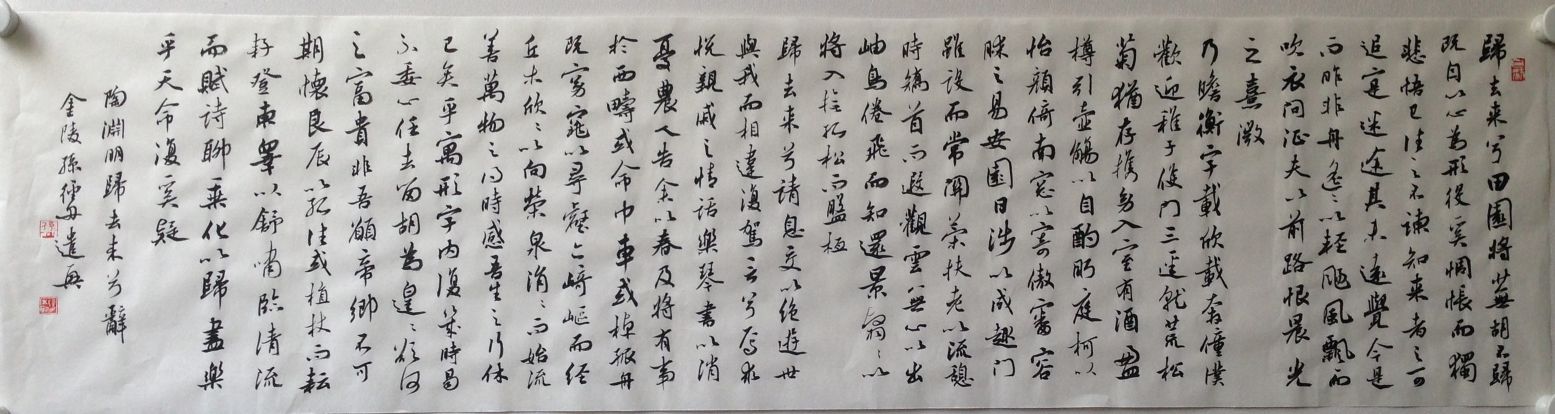 歸去来兮田園将蕪胡不歸
既自以心為形役奚惆悵而獨
悲悟已往之不諫知来者之可
追寔迷途其未遠覺今是
而昨非舟遥々以輕颺風飄而
吹衣问征夫以前路恨晨光
之熹微
乃瞻衡宇載欣載奔僮僕
歡迎稚子候門三逕就荒松
菊猶存携幼入室有酒盈
樽引壺觴以自酌眄庭柯以
怡顔倚南窓以寄傲審容
膝之易安園日涉以成趣门
雖设而常関策扶老以流憩
時矯首而遐觀雲無心以出
岫鳥倦飛而知還景翳々以
将入撫孤松而盤桓
歸去来兮请息交以绝遊世
與我而相違復駕言兮焉求
悦親戚之情話樂琴書以消
憂農人告余以春及将有事
於西疇或命巾車或棹孤舟
既窈窕以尋壑亦崎嶇而经
丘木欣々以向榮泉涓々而始流
善萬物之得時感吾生之行休
已矣乎寓形宇内復幾時曷
不委心任去留胡為遑々欲何
之富貴非吾願帝鄉不可
期懷良辰以孤往或植杖而耘
耔登東皋以舒嘯臨清流
而賦詩聊乗化以歸盡樂
乎天命復奚疑
陶淵明歸去来兮辭
金陵孫